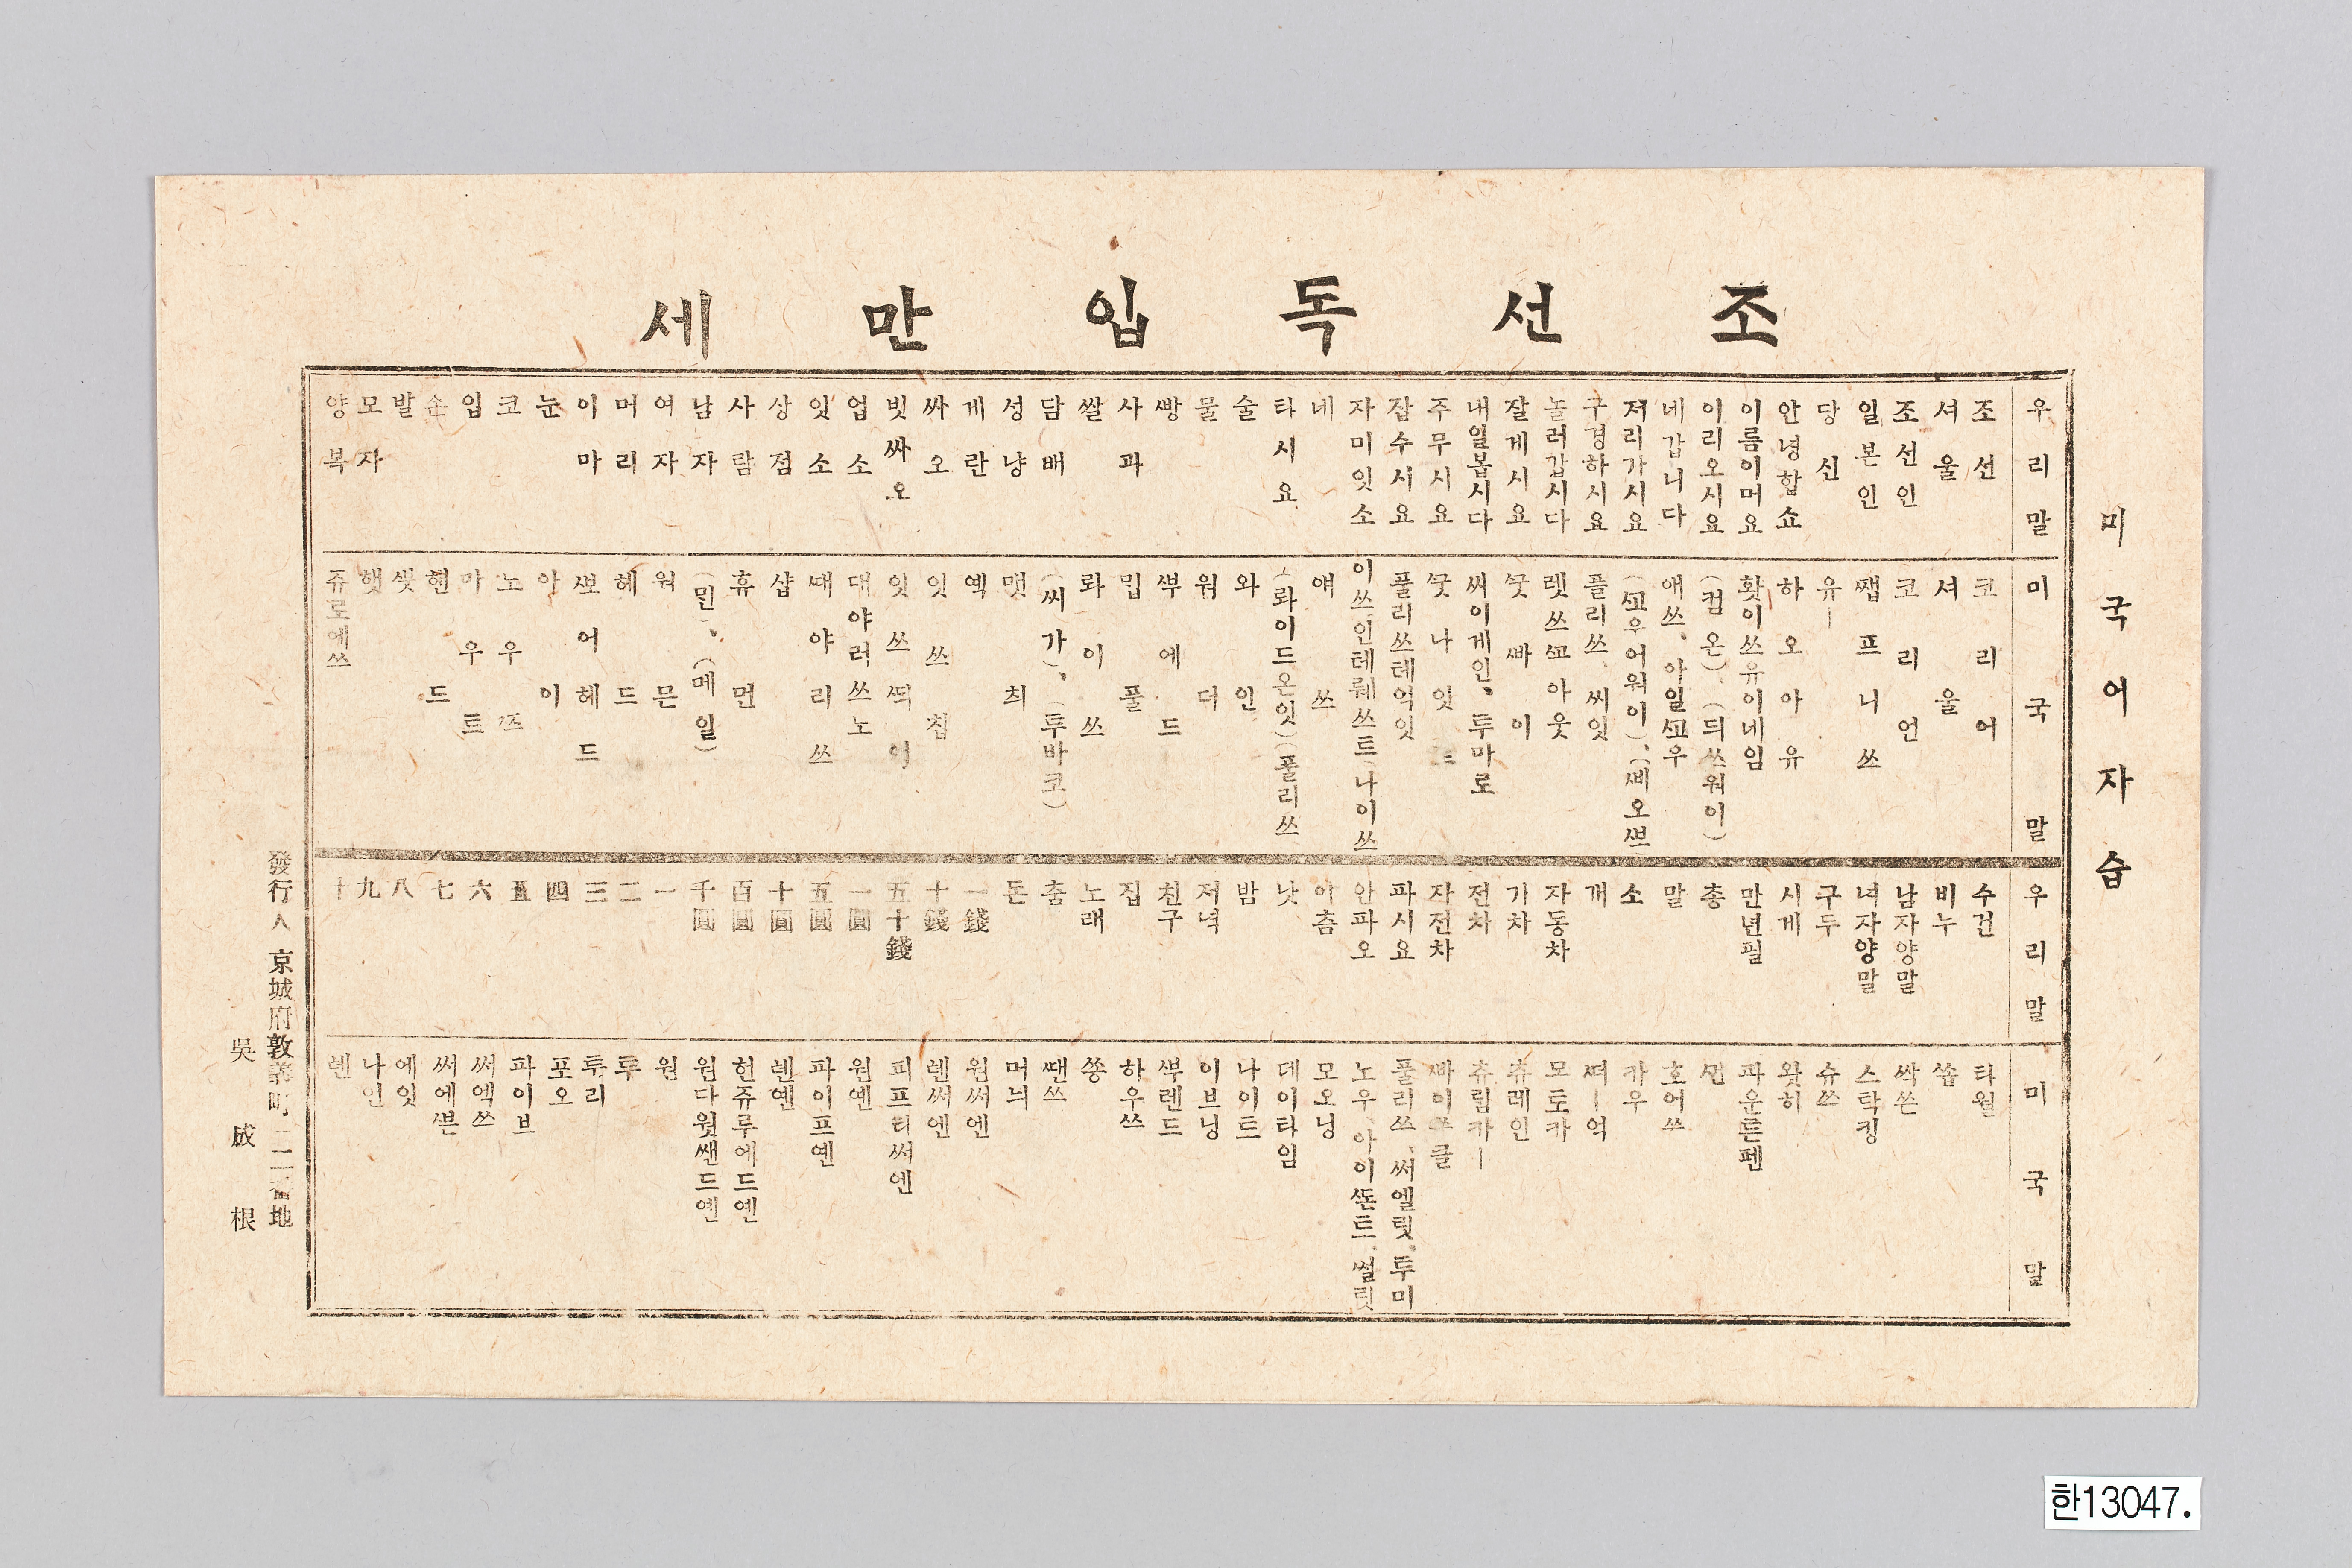 조선독입만세
미국어자습
우리말 미국말
조선 코리어
셔울 셔울
조선인 코리언
일본인 쨉프니쓰
당신 유ー
안녕합쇼 하오아유
이름이머요 홧이쓰유이네임
이리오시요 (컴온)、(듸쓰워이)
네갑니다 애쓰、아일ᄭᅩ우
저리가시요 (ᄭᅩ우어워이)、(ᄲᅵ오ᄲᅳ
구경하시요 플리쓰、씨잇
놀러갑시다 렛쓰ᄭᅩ아웃
잘게시요 ᄭᅮᆺ빠이
내일봅시다 써이게인、투마로
주무시요 ᄭᅮᆺ나잇
잡수시요 풀리쓰테억잇
자미잇소 이쓰인테뤠쓰트、나이쓰
네 얘쓰
타시요 (롸이드온잇)(풀리쓰
술 와인
물 워더
빵 ᄲᅮ에드
사과 밉풀
쌀 롸이쓰
담배 (써가)、(투바코)
성냥 맷최
게란 엑
싸오 잇쓰칩
빗싸오 잇쓰
업소 대야러쓰노
잇소 대야리쓰
상점 샵
사람 휴먼
남자 (민)、(메일)
여자 워믄
머리 헤드
이마 ᄲᅩ어헤드
눈 아이
코 노우쯔
입 마우트
손 핸드
발
모자 햇
양복 쥬로에쓰
우리말 미국말
수건 타월
비누 쏩
남자양말 싹쓴
녀자양말 스탁킹
구두 슈쓰
시게 왓히
만년필 파운튼펜
총
말 호어쓰
소 카우
개 ᄯᅥー억
자동차 모토카
기차 츄레인
전차 츄림카ー
자전차 빠이쓰클
파시요 풀리쓰、써엘릿、투미
안파오 노우、아이ᄯᅩᆫ트、썰릿
아츰 모오닝
낫 데이타임
밤 나이트
저녁 이브닝
친구 ᄲᅮ렌드
집 하우쓰
노래 쏭
춤 ᄯᅢᆫ쓰
돈 머늬
一錢 원써엔
十錢 톈써엔
五十錢 피프티써엔
一圓 원옌
五圓 파이프옌
十圓 톈옌
百圓 헌쥬루에드옌
千圓 원다웟쌘드옌
一 원
二 투
三 투리
四 포오
五 파이브
六 써엑쓰
七 써에쁜
八 에잇
九 나인
十 톈
發行人 京城府敦義町一二二番地
吳成根
한13047.